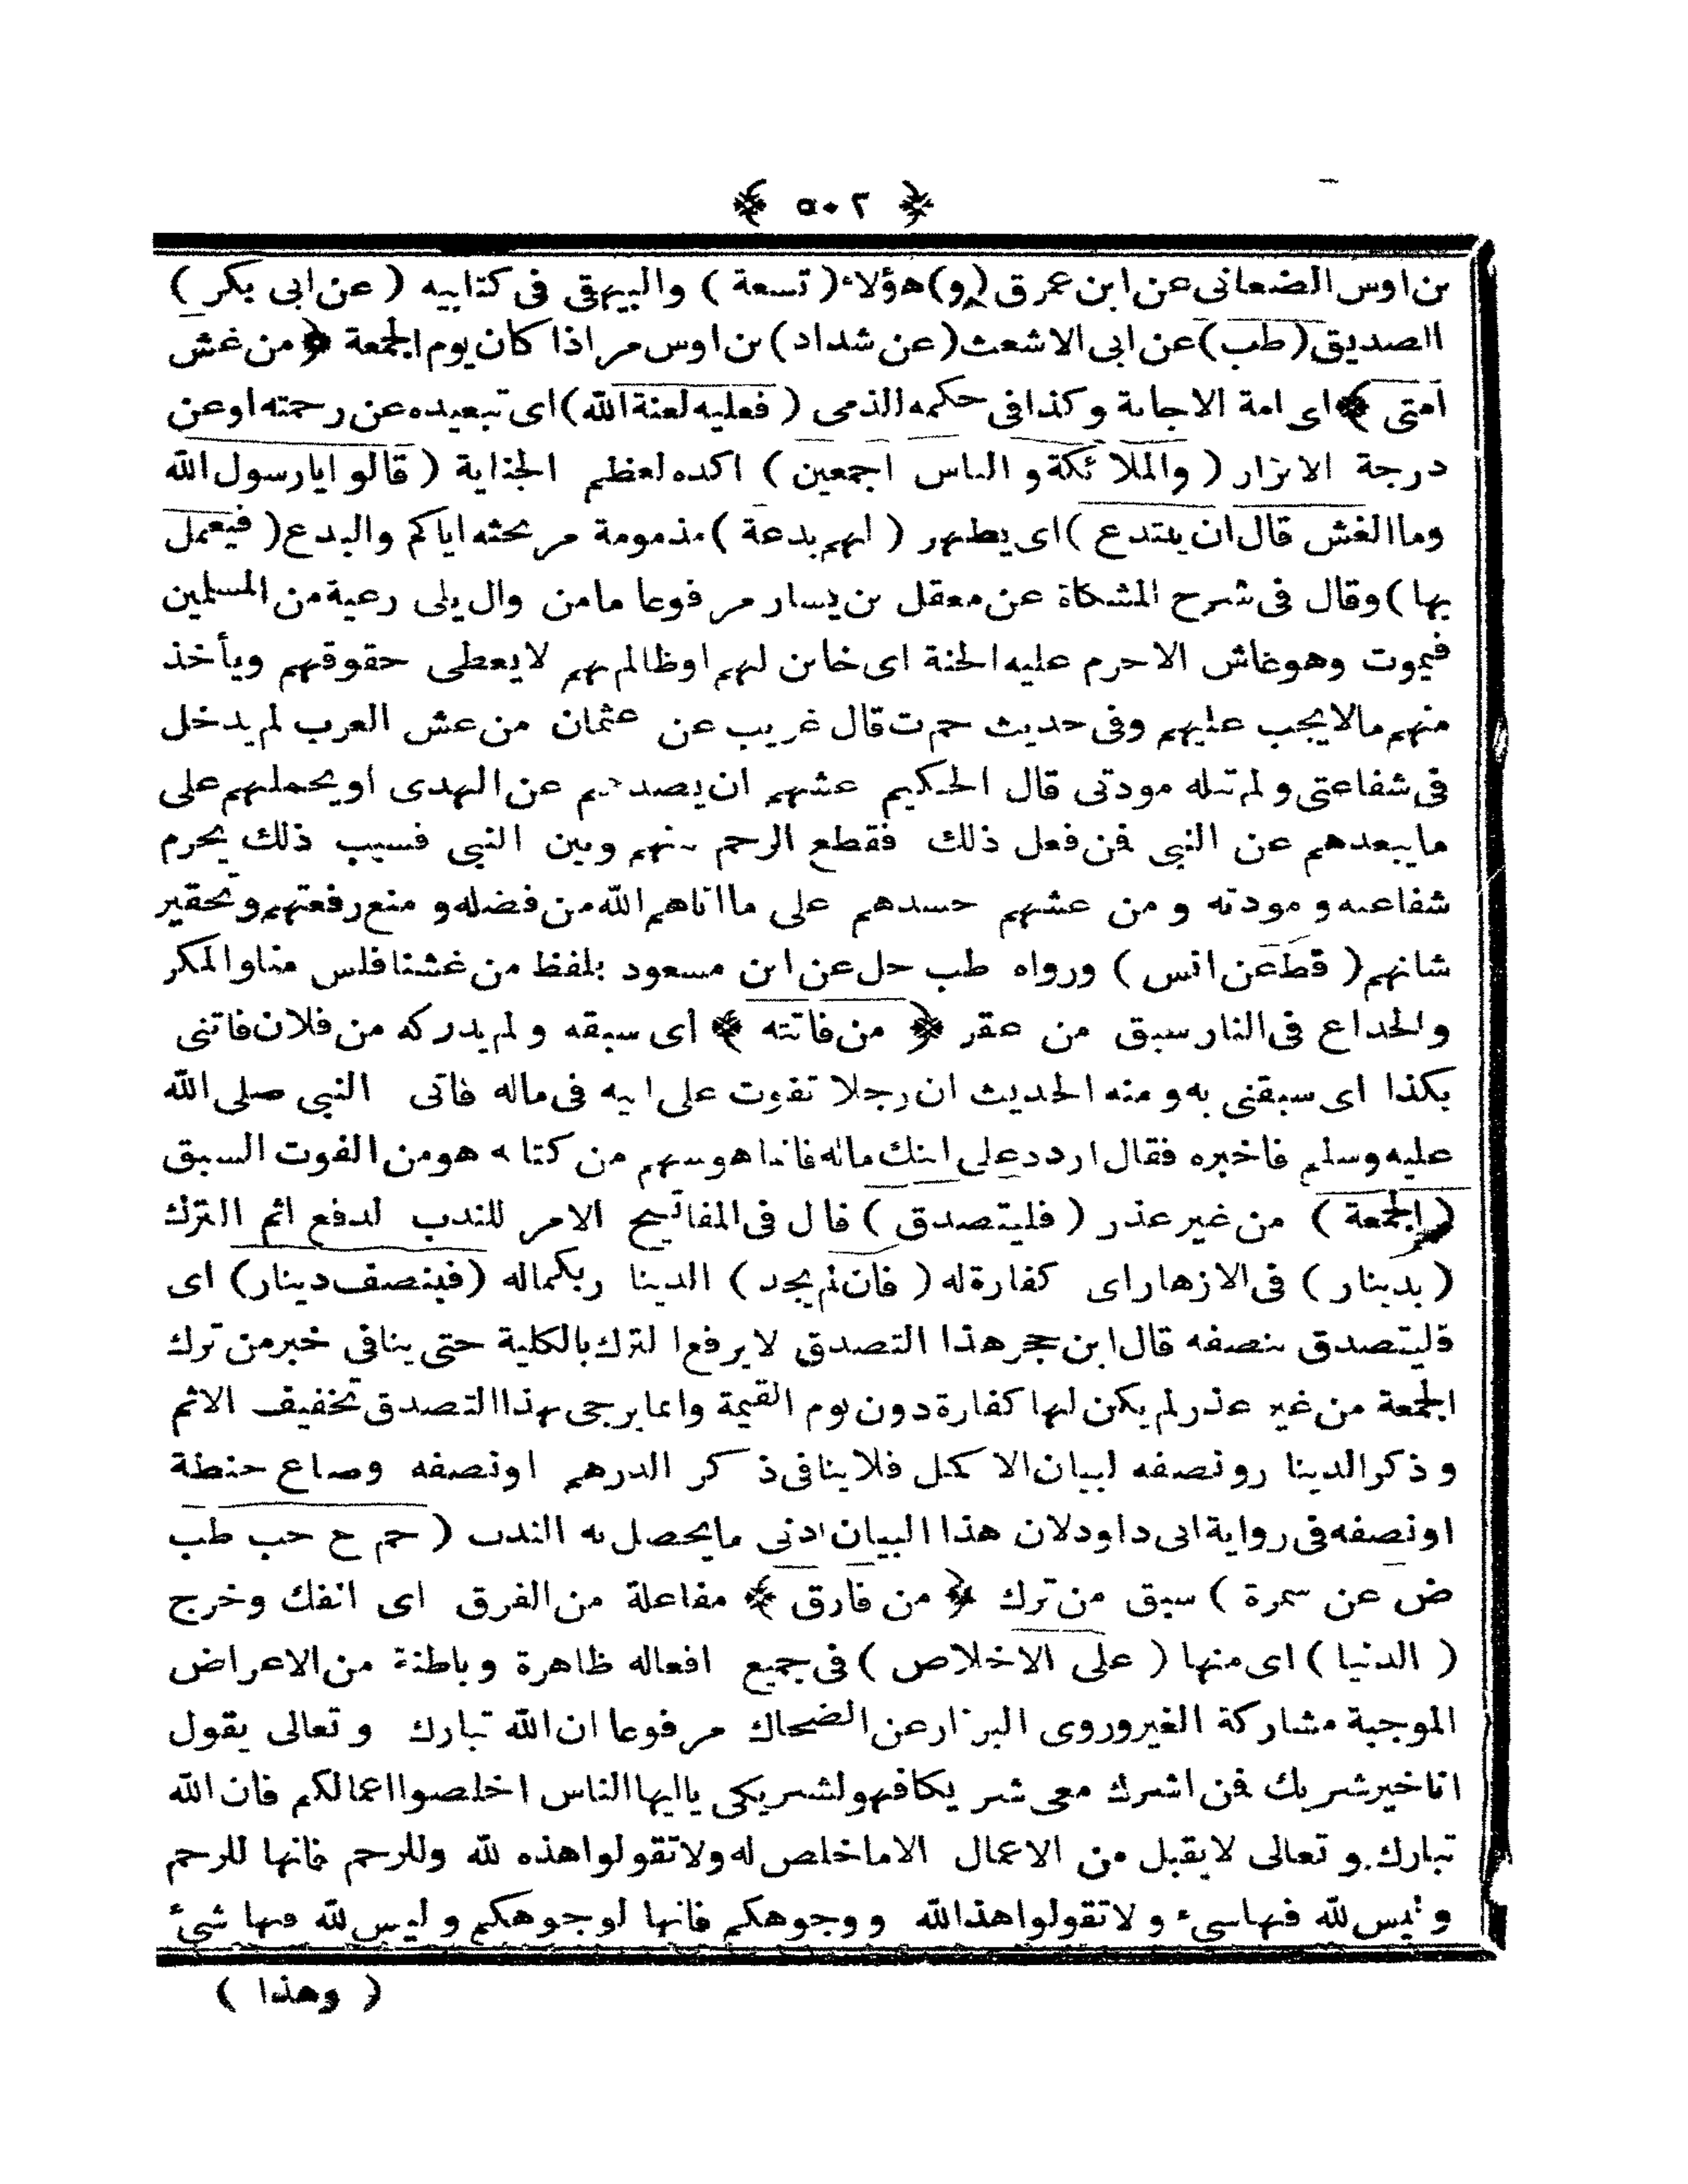 ﴿ ٥٠٢ ﴾
بن اوس الضعانى عن ابن عمرق (و) هؤلاء (تسعة) والبيهقى فى كتابيه (عن ابى بكر)
الصديق (طب) عن ابى الاشعث (عن شداد) بن اوس مر اذا كان يوم الجمعة ﴿ من غش
امتى ﴾ اى امة الاجابة وكذا فى حكمه الذمى (فعليه لعنة الله) اى تبعيده عن رحمته اوعن
درجة الابرار (والملائكة والناس اجمعين) اكده لعظم الجناية (قالوا يارسول الله
وما الغش قال ان يبتدع) اى يظهر (لهم بدعة) مذمومة مر بحثه اياكم والبدع (فيعمل
بها) وقال فى شرح المشكاة عن معقل بن يسار مر فوعا مامن وال يلى رعية من المسلمين
فيموت وهو غاش الاحرم عليه الجنة اى خاىن لهم اوظالم بهم لا يعطى حقوقهم ويأخذ
منهم مالا يجب عليهم وفى حديث حم ت قال غريب عن عثمان من غش العرب لم يدخل
فى شفاعتى ولم تنله مودتى قال الحكيم غشهم ان يصدهم عن الهدى او يحملهم على
ما يبعدهم عن النبى فمن فعل ذلك فقطع الرحم بينهم وبين النبى فسبب ذلك يحرم
شفاعته ومودته ومن غشهم حسدهم على ما اتاهم الله من فضله و منع رفعتهم وتحقير
شانهم (قط عن انس) ورواه طب حل عن ابن مسعود بلفظ من غشنا فليس منا والمكر
والخداع فى النار سبق من عقر ﴿ من فاتته ﴾ أى سبقه ولم يدركه من فلان فاتنى
بكذا اى سبقنى به ومنه الحديث ان رجلا تفوت على ابيه فى ماله فاتى النبى صلى الله
عليه وسلم فاخبره فقال اردد على ابنك ماله فانما هو سهم من كنانته هو من الفوت السبق
(الجمعة) من غير عذر (فليتصدق) قال فى المفاتيح الامر للندب لدفع اثم الترك
(بدينار) فى الازهار اى كفارة له (فان لم يجد) الدينا ر بكماله (فبنصف دينار) اى
فليتصدق بنصفه قال ابن حجر هذا التصدق لا يرفع الترك بالكلية حتى ينافى خبر من ترك
الجمعة من غير عذر لم يكن لها كفارة دون يوم القيمة وانما يرجى بهذا التصدق تخفيف الاثم
وذكر الدينا رو نصفه لبيان الاكمل فلا ينافى ذكر الدرهم اونصفه وصاع حنطة
اونصفه فى رواية ابى داود لان هذا البيان ادنى ما يحصل به الندب (حم ع حب طب
ض عن سمرة) سبق من ترك ﴿ من فارق ﴾ مفاعلة من الفرق اى انفك وخرج
(الدنيا) اى منها (على الاخلاص) فى جميع افعاله ظاهرة وباطنة من الاعراض
الموجبة مشاركة الغير وروى البزار عن الضحاك مر فوعا ان الله تبارك وتعالى يقول
انا خير شريك فمن اشرك معى شر يكا فهو لشريكى يا ايها الناس اخلصوا اعمالكم فان الله
تبارك و تعالى لا يقبل من الاعمال الا ما خلص له ولا تقولوا هذه لله وللرحم فانها للرحم
وليس لله فيها شىء ولا تقولوا هذا لله ووجوهكم فانها لوجوهكم وليس لله فيها شىء
(وهذا)